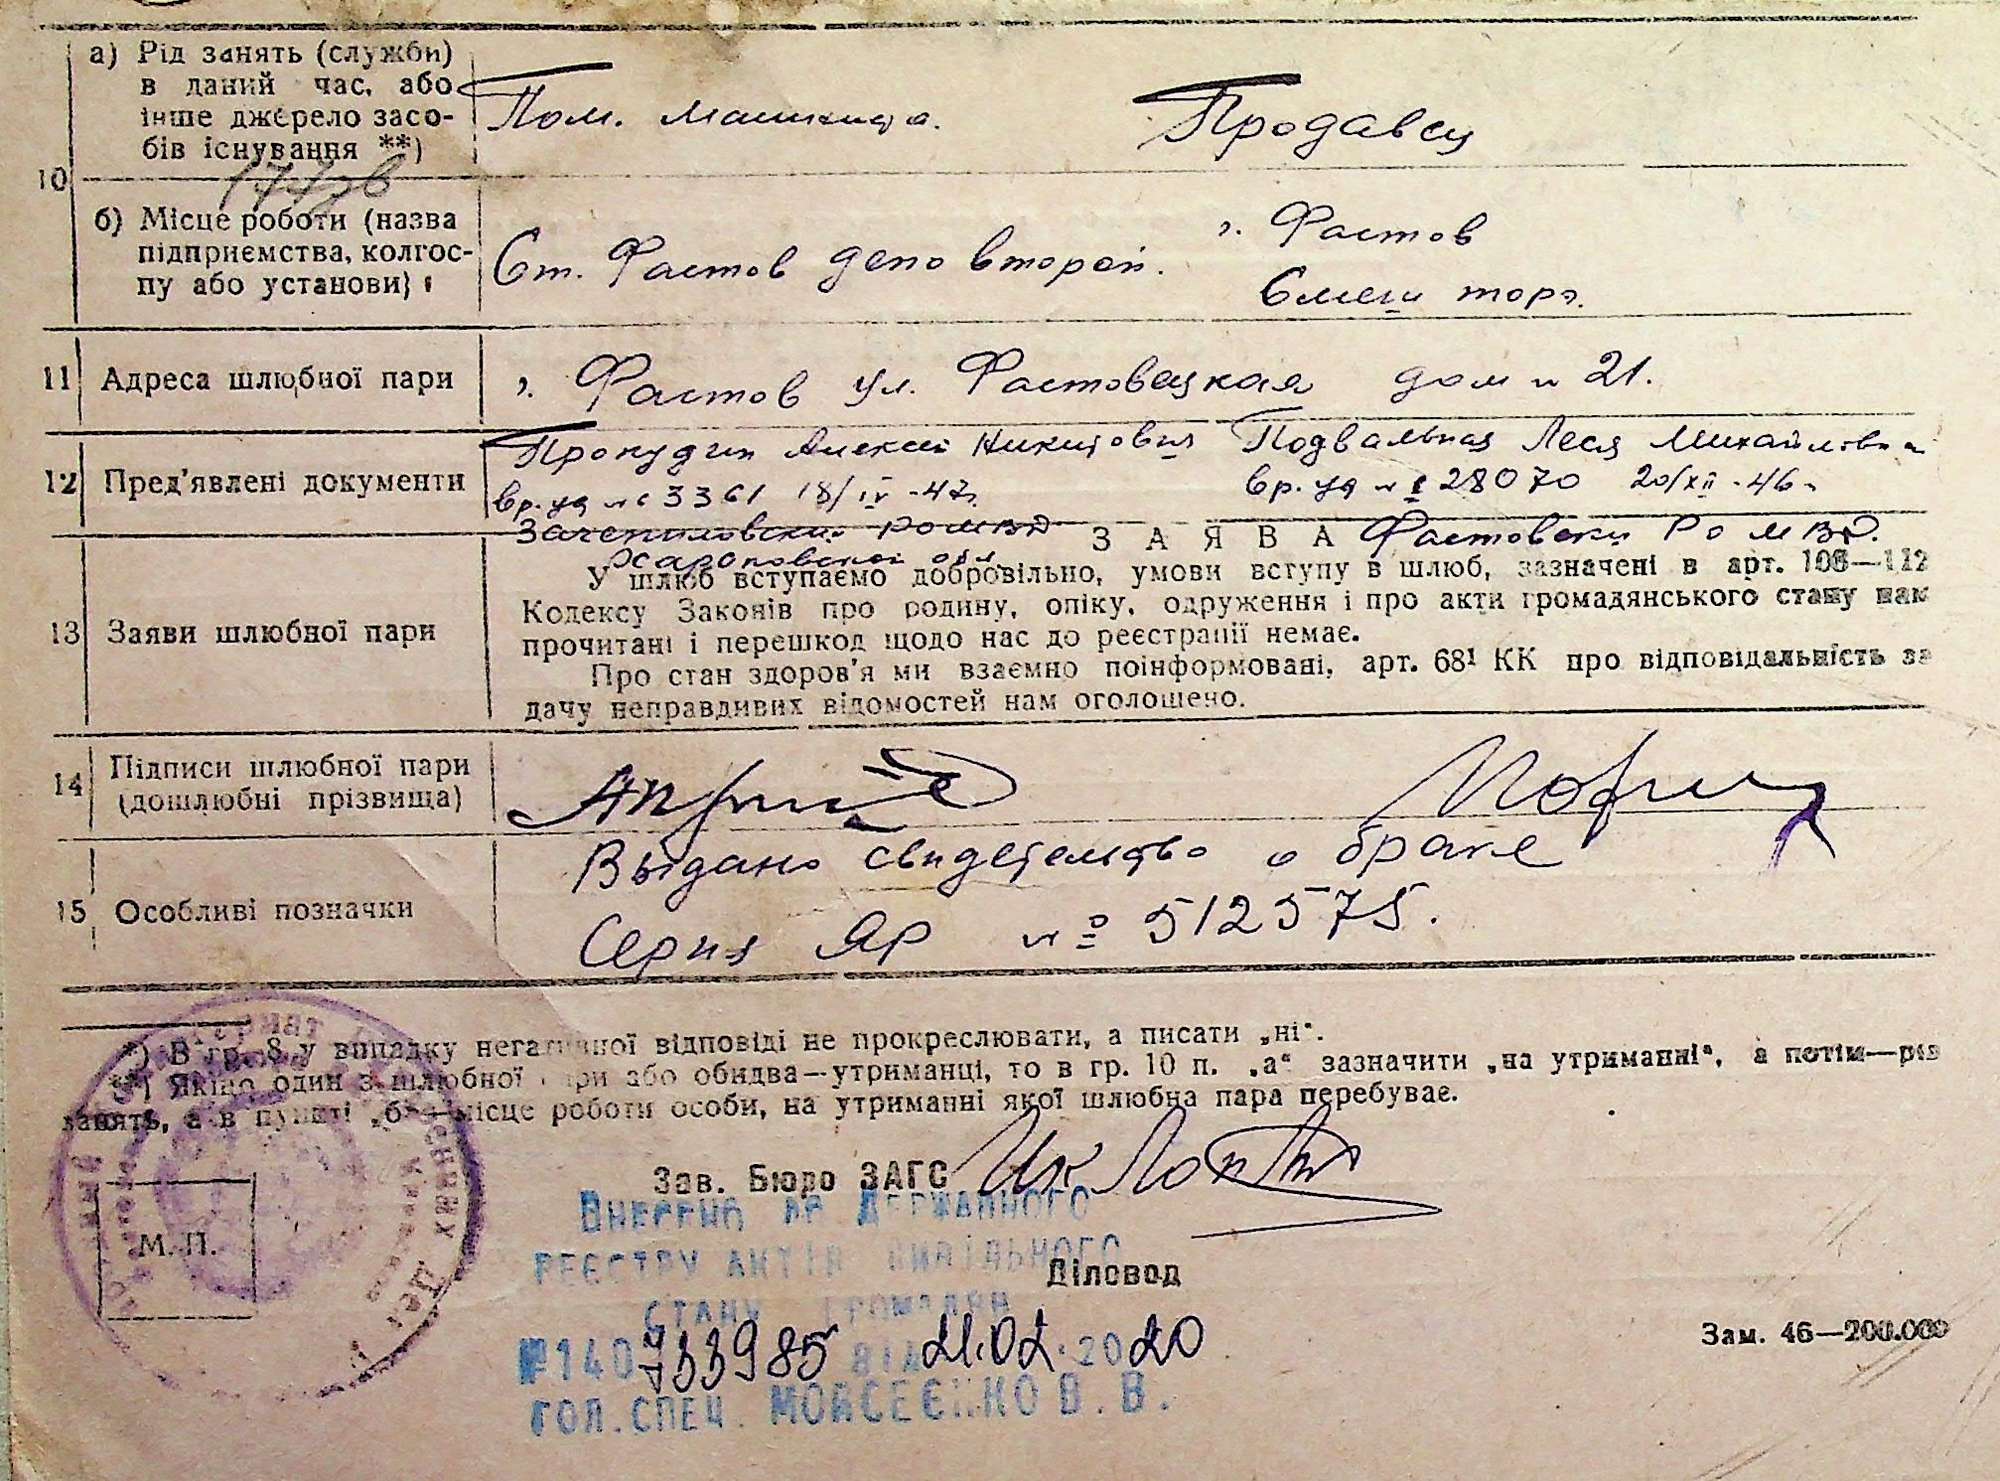 а) Рід занять (служби)
в даний час, або
інше джерело засо-
бів існування **)
Пом. машиниста.
Продавец
10
б) Місце роботи (назва
підприємства, колгос-
пу або установи)
Ст. Фастов депо второй.
г. Фастов
Смеш торг.
11 Адреса шлюбної пари
г. Фастов ул. Фастовецкая дом № 21.
12 Пред'явлені документи
Прокудин Алексей Никитович
вр. уд № 3361 18/IV-47г.
Зачепиловский РОМВД
Харьковской обл.
Подвальная Леся Михайловна
вр. уд № 28070 20/XII-46г.
Фастовски РОМВД.
13 Заяви шлюбної пари
ЗАЯВА
У шлюб вступаємо добровільно, умови вступу в шлюб, зазначені в арт. 108—112
Кодексу Законів про родину, опіку, одруження і про акти громадянського стану нам
прочитані і перешкод щодо нас до реєстрації немає.
Про стан здоров'я ми взаємно поінформовані, арт. 68¹ КК про відповідальність за
дачу неправдивих відомостей нам оголошено.
14 Підписи шлюбної пари
(дошлюбні прізвища)
15 Особливі позначки
Выдано свидетельство о браке
Серия ЯР № 512575.
*) В гр. 8 у випадку негативної відповіді не прокреслювати, а писати „ні".
**) Якщо один з шлюбної пари або обидва—утриманці, то в гр. 10 п. „а" зазначити „на утриманні", а потім—рід
занять, а в пункті „б"—місце роботи особи, на утриманні якої шлюбна пара перебуває.
Зав. Бюро ЗАГС
М. П.
Діловод
ВНЕСЕНО ДО ДЕРЖАВНОГО
РЕЄСТРУ АКТІВ ЦИВІЛЬНОГО
СТАНУ ГРОМАДЯН
№140733985 ВІД 21.02.2020
ГОЛ.СПЕЦ. МОЙСЕЄНКО В. В.
Зам. 46—200.000